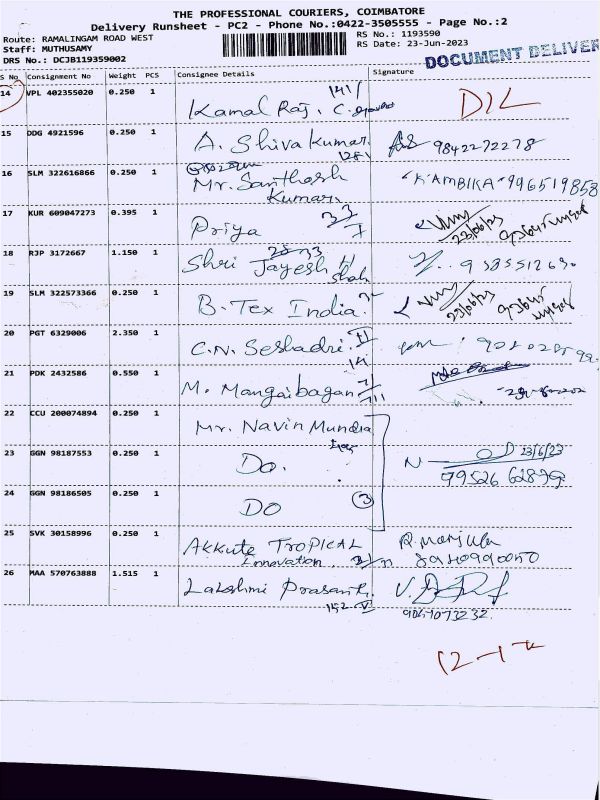 THE PROFESSIONAL COURIERS, COIMBATORE
Delivery Runsheet - PC2 - Phone No.:0422-3505555 - Page No.:2
Route: RAMALINGAM ROAD WEST
Staff: MUTHUSAMY
DRS No.: DCJB119359002
RS No.: 1193590
RS Date: 23-Jun-2023
DOCUMENT DELIVER
S No Consignment No Weight PCS Consignee Details Signature
14 VPL 402355020 0.250 1 Kamal Raj. C. 141/ DIL
15 DDG 4921596 0.250 1 A. Shiva kumar. 128/ 9842272278
16 SLM 322616866 0.250 1 Mr. Santhosh Kumar. "K AMBIKA" 996519858
17 KUR 609047273 0.395 1 Priya 33/I 23/06/23
18 RJP 3172667 1.150 1 Shri Jayesh H Shah
19 SLM 322573366 0.250 1 B. Tex India. 23/06/23
20 PGT 6329006 2.350 1 C.N. Seshadri. II 141
21 PDK 2432586 0.550 1 M. Mangaibagan
22 CCU 200074894 0.250 1 Mr. Navin Mundra
23 GGN 98187553 0.250 1 Do. N 23/6/23
99526 62879
24 GGN 98186505 0.250 1 DO 3
25 SVK 30158996 0.250 1 Akkute Tropical Innovation. R. Manjula
26 MAA 570763888 1.515 1 Lakshmi Prasanth. 152 V
12-1